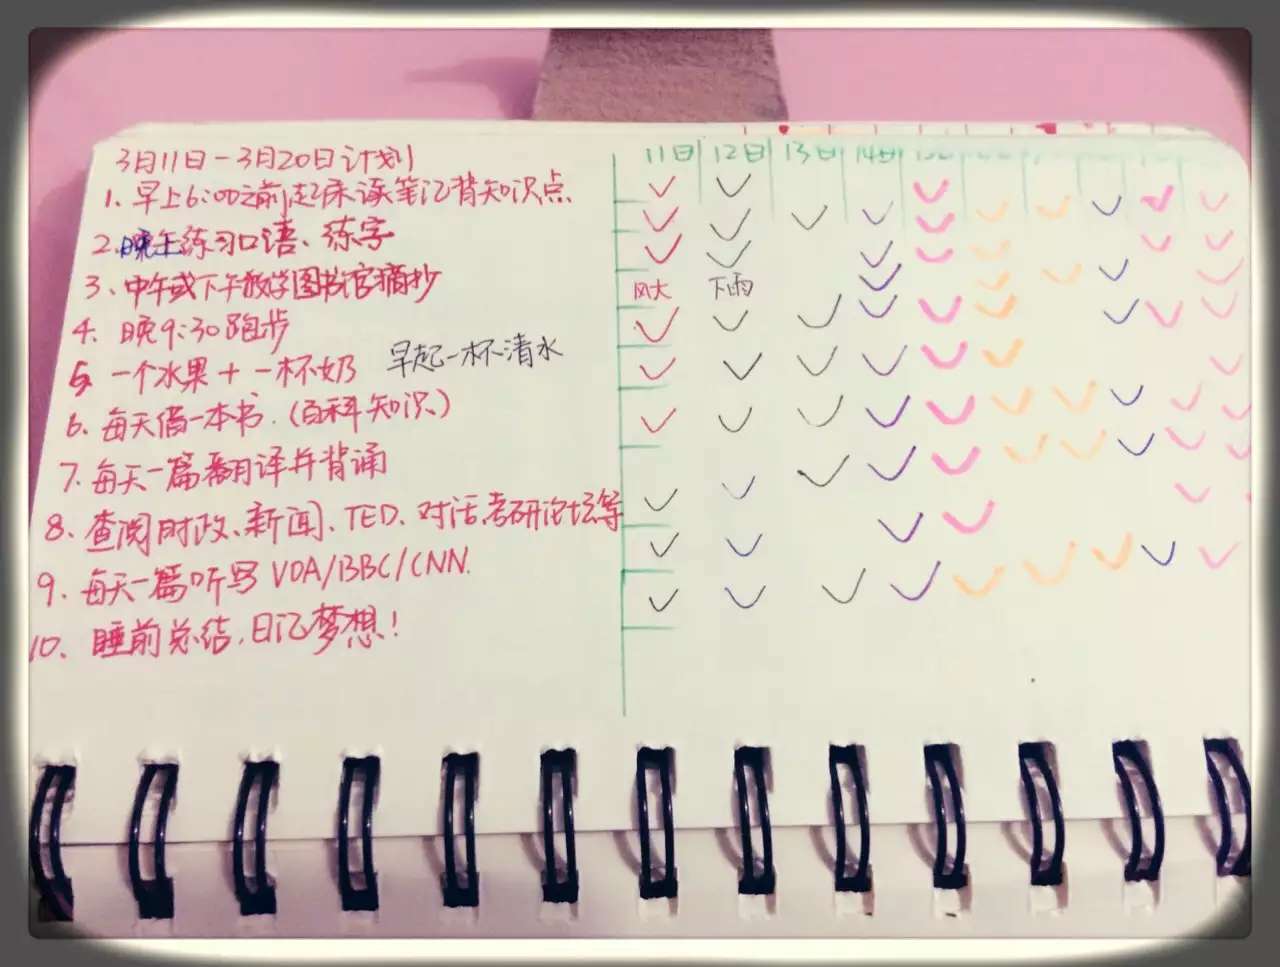 3月11日-3月20日计划
11日 12日 13日 14日 15日
1、早上6:00之前起床读笔记背知识点
2、晚上练习口语、练字
3、中午或下午教学图书馆摘抄
风大 下雨
4、晚9:30跑步
5 一个水果+一杯奶 早起一杯清水
6、每天借一本书.(百科知识)
7、每天一篇翻译并背诵
8、查阅时政、新闻、TED、对话、考研论坛等
9、每天一篇听写VOA/BBC/CNN.
10、睡前总结,日记梦想!